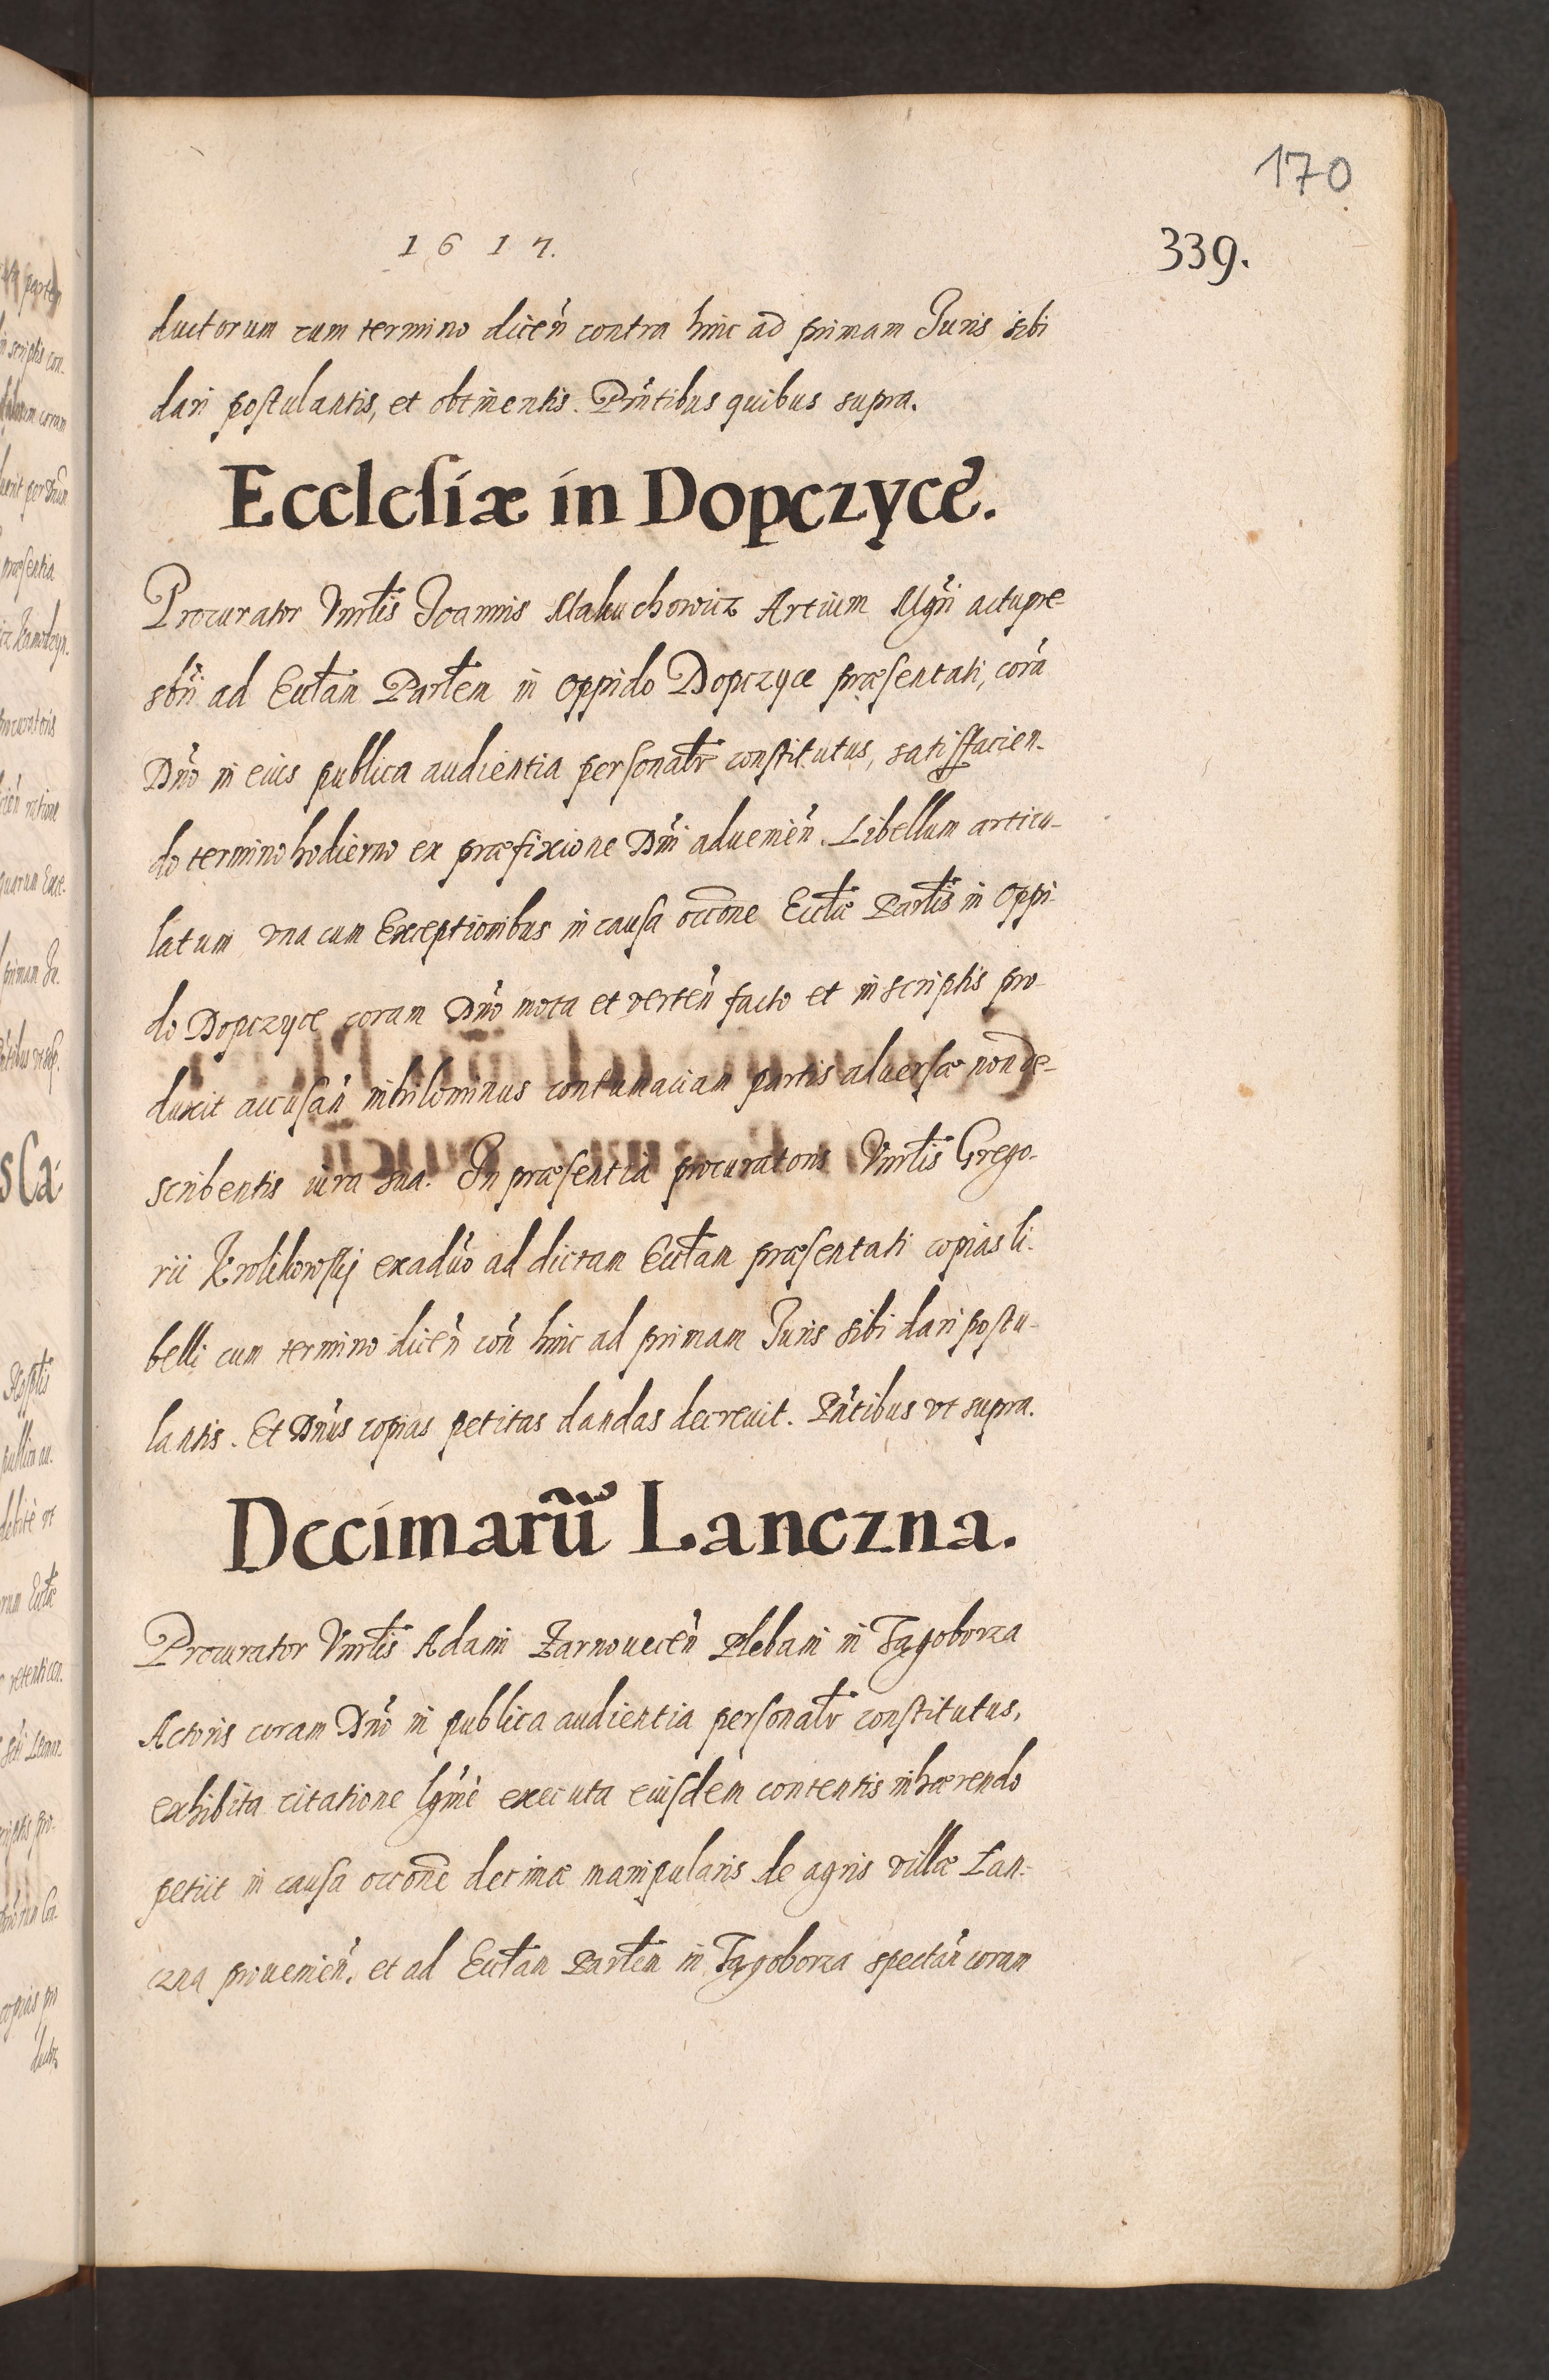 170
1617.
339.
ductorum cum termino diceñ contra hinc ad primam Juris sibi
dari postulantis, et obtinentis. Pñtibus quibus supra.
Ecclesiæ in Dopczyce.
Procurator Vnrłis Joannis Makuchowicz Artium Mgri actu pre-
sbri ad Ecłam Parłem in oppido Dopczyce præsentati, corã
Dño in eius publica audientia personałr constitutus, satisfacien-
do termino hodierno ex præfixione Dñi adueniẽn. Libellum articu-
latum vna cum Exceptionibus in causa occõne Ecłæ Parłis in Oppi-
do Dopczyce coram Dño mota et verteñ facto et in scriptis pro-
duxit accusañ nihilominus contumaciam partis aduersæ non de-
scribentis iura sua. In præsentia procuratoris Vnrłis Grego-
rii Krolikowskj exaduõ ad dictam Ecłam præsentati copias li-
belli cum termino diceñ coñ hinc ad primam Juris sibi dari postu-
lantis. Et Dñus copias petitas dandas decreuit. Pñtibus vt supra.
Decimarũ Lanczna.
Procurator Vnrłis Adami Zarnoueceñ Plebani in Tęgoborza
Actoris coram Dño in publica audientia personałr constitutus,
exhibita citatione lgmè executa eiusdem contentis inhærendo
petiit in causa occõne decimæ manipularis de agris villæ Lan-
czna prouenieñ. et ad Ecłam Parłem in Tęgoborza spectañ coram